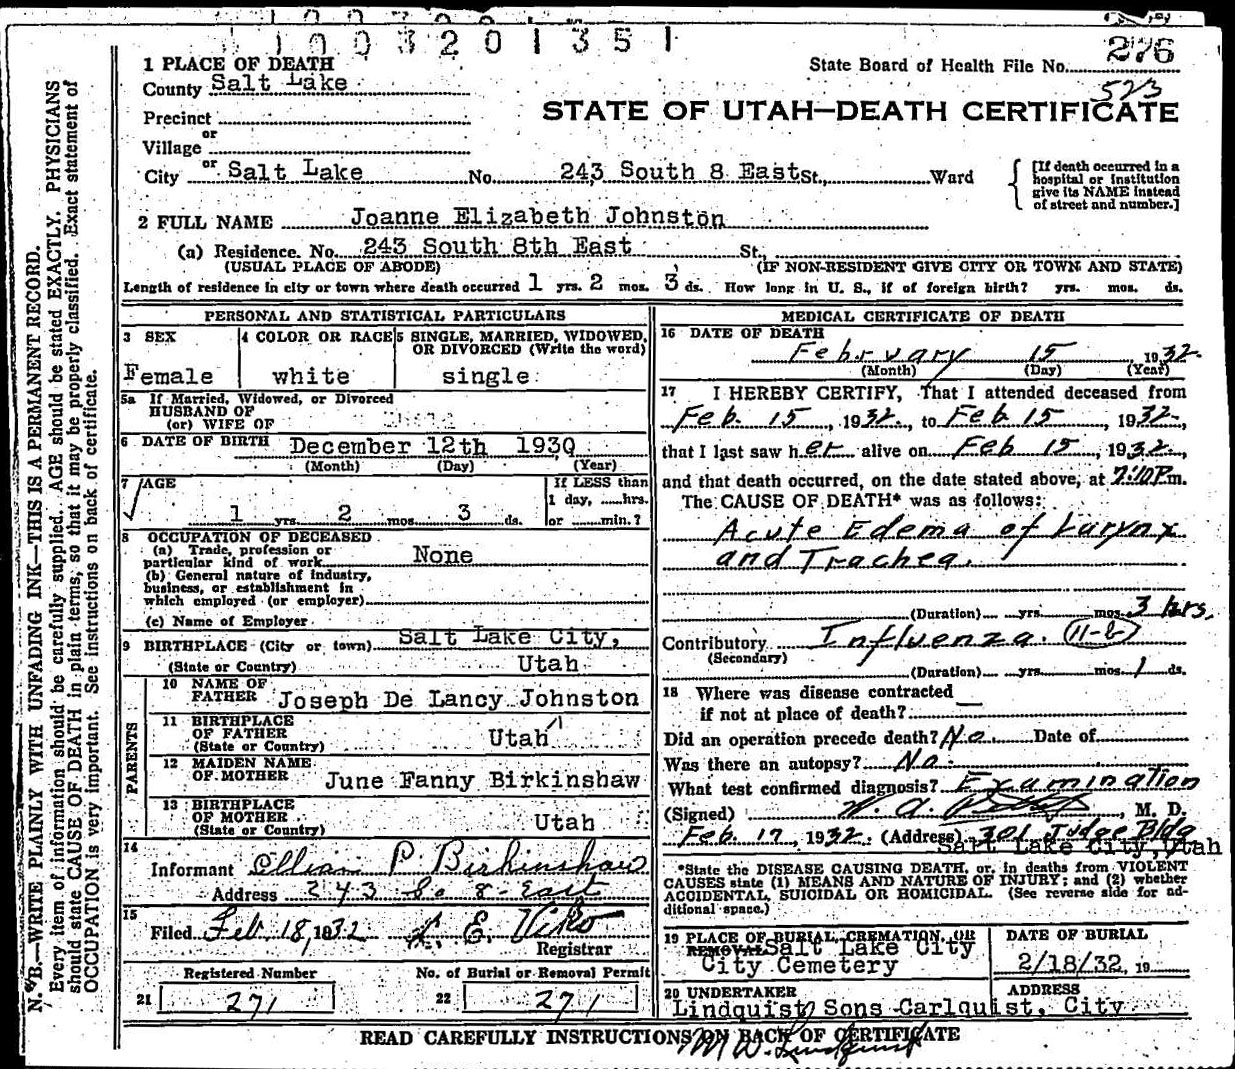 1003201351
276
State Board of Health File No.
523
1 PLACE OF DEATH
County Salt Lake
STATE OF UTAH—DEATH CERTIFICATE
Precinct
or
Village
or
City Salt Lake No. 243 South 8 East St., Ward
[If death occurred in a hospital or institution give its NAME instead of street and number.]
2 FULL NAME Joanne Elizabeth Johnston
(a) Residence. No. 243 South 8th East St.,
(USUAL PLACE OF ABODE) (IF NON-RESIDENT GIVE CITY OR TOWN AND STATE)
Length of residence in city or town where death occurred 1 yrs. 2 mos. 3 ds. How long in U. S., if of foreign birth? yrs. mos. ds.
PERSONAL AND STATISTICAL PARTICULARS
3 SEX
Female
4 COLOR OR RACE
white
5 SINGLE, MARRIED, WIDOWED,
OR DIVORCED (Write the word)
single
5a If Married, Widowed, or Divorced
HUSBAND OF
(or) WIFE OF
6 DATE OF BIRTH December 12th 1930
(Month) (Day) (Year)
7 AGE
1 yrs. 2 mos. 3 ds.
If LESS than
1 day, hrs.
or min.?
8 OCCUPATION OF DECEASED
(a) Trade, profession or
particular kind of work None
(b) General nature of industry,
business, or establishment in
which employed (or employer)
(c) Name of Employer
9 BIRTHPLACE (City or town) Salt Lake City,
(State or Country) Utah
PARENTS
10 NAME OF
FATHER Joseph De Lancy Johnston
11 BIRTHPLACE
OF FATHER
(State or Country) Utah
12 MAIDEN NAME
OF MOTHER June Fanny Birkinshaw
13 BIRTHPLACE
OF MOTHER
(State or Country) Utah
14
Informant P. Birkinshaw
Address 243 So 8 East
15
Filed Feb. 18, 1932 E.
Registrar
Registered Number
21 271
No. of Burial or Removal Permit
22 271
MEDICAL CERTIFICATE OF DEATH
16 DATE OF DEATH
February 15, 1932.
(Month) (Day) (Year)
17 I HEREBY CERTIFY, That I attended deceased from
Feb. 15, 1932, to Feb 15, 1932,
that I last saw her alive on Feb 15, 1932,
and that death occurred, on the date stated above, at 7:10 P.m.
The CAUSE OF DEATH* was as follows:
Acute Edema of Larynx
and Trachea.
(Duration) yrs. mos. 3 hrs.
Contributory Influenza. (11-b)
(Secondary)
(Duration) yrs. mos. 1 ds.
18 Where was disease contracted
if not at place of death? —
Did an operation precede death? No. Date of
Was there an autopsy? No.
What test confirmed diagnosis? Examination
(Signed) W. A. M. D.
Feb. 17, 1932. (Address) 301 Judge Bldg
Salt Lake City, Utah
*State the DISEASE CAUSING DEATH, or, in deaths from VIOLENT
CAUSES state (1) MEANS AND NATURE OF INJURY; and (2) whether
ACCIDENTAL, SUICIDAL OR HOMICIDAL. (See reverse side for ad-
ditional space.)
19 PLACE OF BURIAL, CREMATION, OR
REMOVAL Salt Lake City
City Cemetery
DATE OF BURIAL
2/18/32, 19
20 UNDERTAKER
Lindquist Sons Carlquist, City
ADDRESS
READ CAREFULLY INSTRUCTIONS ON BACK OF CERTIFICATE
M W. Lindquist
N. B.—WRITE PLAINLY WITH UNFADING INK—THIS IS A PERMANENT RECORD.
Every item of information should be carefully supplied. AGE should be stated EXACTLY. PHYSICIANS
should state CAUSE OF DEATH in plain terms, so that it may be properly classified. Exact statement of
OCCUPATION is very important. See instructions on back of certificate.